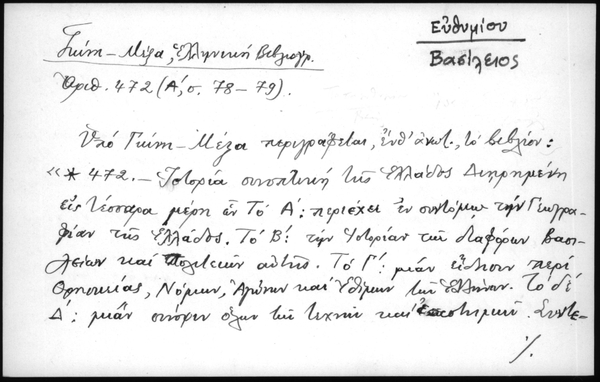 Εὐθυμίου
Βασίλειος
Γκίνη – Μέξα, Ἑλληνική Βιβλιογρ.
Ἀριθ. 472 (Α΄, σ. 78–79).
Ὑπό Γκίνη – Μέξα περιγράφεται, ἔνθ' ἀνωτ., τό βιβλίον:
«* 472. – Ἱστορία συνοπτική τῆς Ἑλλάδος Διῃρημένη
εἰς τέσσαρα μέρη ἐν Τό Α΄: περιέχει ἐν συντόμῳ τήν Γεωγρα-
φίαν τῆς Ἑλλάδος. Τό Β΄: τήν Ἱστορίαν τῶν διαφόρων Βασι-
λείων καί Πολιτειῶν αὐτῆς. Τό Γ΄: μιάν εἴδησιν περί
Θρησκείας, Νόμων, Ἀγώνων καί Ἐθίμων τῶν Ἑλλήνων. Τό δέ
Δ΄: μιάν σύνοψιν ὅλων τῶν τεχνῶν καί ἐπιστημῶν. Συντε-
./.